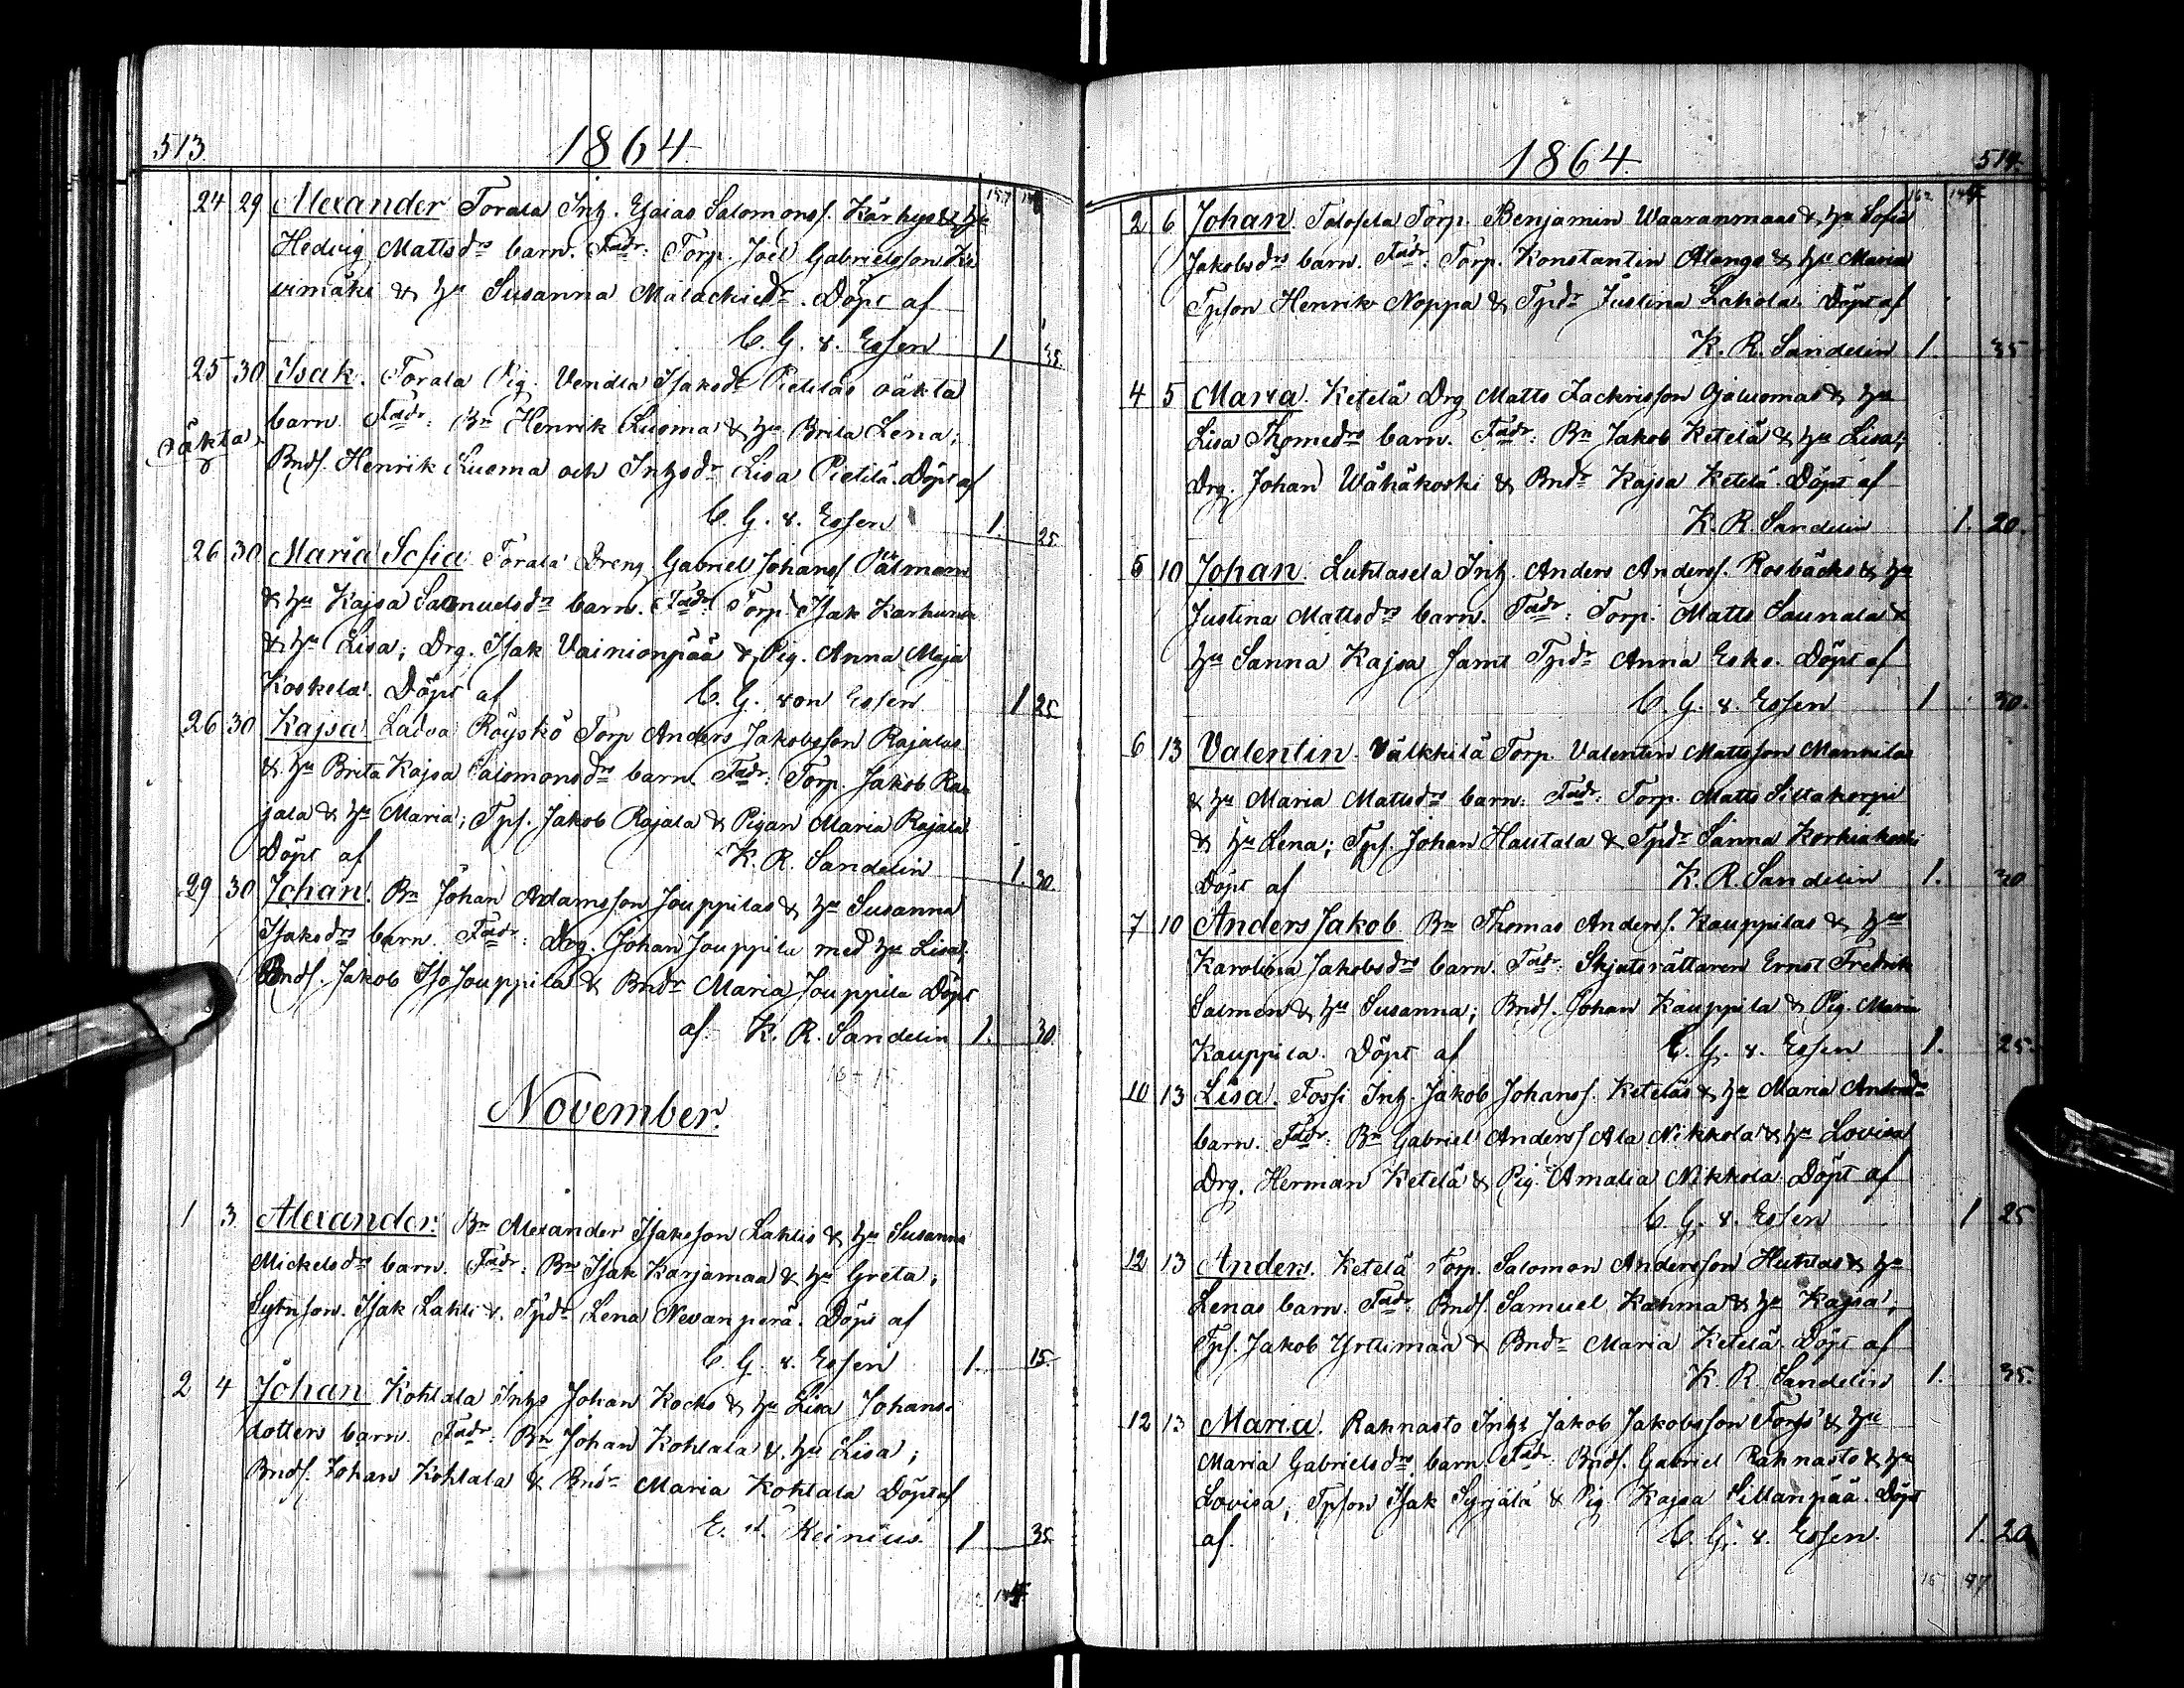 513.
1864.
157 146
24 29 Alexander Torala Inh. Esaias Salomonss. Kärhys & hu
Hedvig Mattsdrs barn. Fadr: Torp. Joel Gabrielsson Ki
vimäki & hu Susanna Malachiedr. Döpt af
C. G. v. Essen 1 35.
25 30 Isak. Torala Pig. Vendla Isaksdr Pietiläs oäkta
oäkta. barn. Fadr: Bn Henrik Luoma & hu Brita Lena;
Bnds. Henrik Luoma och Inhsdr Lisa Pietilä. Döpt af
C. G. v. Essen 1. 25.
26 30 Maria Sofia Torala Dreng Gabriel Johanss Pälmans
& hu Kajsa Samuelsdrs barn. Fadr: Torp. Isak Karhunen
& hu Lisa; Drg. Isak Vainionpää & Pig. Anna Maja
Koskela. Döpt af C. G. von Essen 1 25
26 30 Kajsa Ladva Röyskö Torp Anders Jakobsson Rajalas
& hu Brita Kajsa Salomonsdrs barn. Fadr: Torp. Jakob Ra
jala & hu Maria; Tps. Jakob Rajala & Pigan Maria Rajala
Döpt af K. R. Sandelin 1. 30.
29 30 Johan. Bn Johan Adamsson Jouppilas & hu Susanna
Isaksdrs barn. Fadr: Drg. Johan Jouppila med hu Lisa;
Bnds. Jakob IsoJouppila & Bndr Maria Jouppila Döpt
af. K. R. Sandelin 1. 30.
November.
1 3 Alexander. Bn Alexander Isaksson Lahtis & hu Susanna
Mickelsdrs barn. Fadr: Bn Isak Karjamaa & hu Greta;
Sytnson. Isak Lahti & Tpdr Lena Nevanperä. Döpt af
C. G. v. Essen 1. 15.
2 4 Johan Kohtala Inhs Johan Kocks & hu Lisa Johans-
dotters barn. Fadr: Bn Johan Kohtala & hu Lisa;
Bnds. Johan Kohtala & Bndr Maria Kohtala Döpt af
Reinius. 1 35.
1864.
514.
162 144
2 6 Johan. Talosela Torp. Benjamin Waaranmaas & hu Sofia
Jakobsdrs barn. Fadr: Torp. Konstantin Alango & hu Maria
Tpson Henrik Noppa & Tpdr Justina Lahola. Döpt af
K. R. Sandelin 1. 35
4 5 Maria. Ketelä Drg Matts Zachrisson Ojaluomas & hu
Lisa Thomedrs barn. Fadr: Bn Jakob Ketelä & hu Lisa;
Drg. Johan Wähäkoski & Bndr Kajsa Ketelä. Döpt af
K. R. Sandelin 1. 20.
5 10 Johan. Luhtasela Inh. Anders Anderss. Rosbäcks & hu
Justina Mattsdrs barn. Fadr: Torp. Matts Saunala &
hu Sanna Kajsa samt Tpdr Anna Esko. Döpt af
C. G. v. Essen 1 30.
6 13 Valentin. Välkkilä Torp. Valentin Mattsson Mannilas
& hu Maria Mattsdrs barn. Fadr: Torp. Matts Siltakorpi
& hu Lena; Tps. Johan Hautala & Tpdr Sanna Korkiakoski
Döpt af K. R. Sandelin 1. 30
7 10 Anders Jakob Bn Thomas Anderss. Kauppilas & hu
Karolina Jakobsdrs barn. Fadr: Skjutsrättaren Ernst Fredrik
Salmen & hu Susanna; Bnds. Johan Kauppila & Pig. Maria
Kauppila. Döpt af C. G. v. Essen 1. 25.
10 13 Lisa. Fossi Inh. Jakob Johanss. Ketelas & hu Maria Antonsdr
barn. Fadr: Bn Gabriel Anderss Ala Nikkola & hu Lovisa
Drg. Herman Ketelä & Pig. Amalia Nikkola. Döpt af
C. G. v. Essen 1 25
12 13 Anders. Ketelä Torp. Salomon Andersson Huhtas & hu
Lenas barn. Fadr: Bnds. Samuel Kahma & hu Kajsa;
Tps. Jakob Yrttimaa & Bndr Maria Ketelä. Döpt af
K. R. Sandelin 1. 35.
12 13 Maria. Rahnasto Inhs Jakob Jakobsson Torps & hu
Maria Gabrielsdrs barn. Fadr. Bnds. Gabriel Rahnasto & hu
Lovisa; Tpson Isak Syrjälä & Pig. Kajsa Sillanpää. Döpt
af. C. G. v. Essen. 1. 20